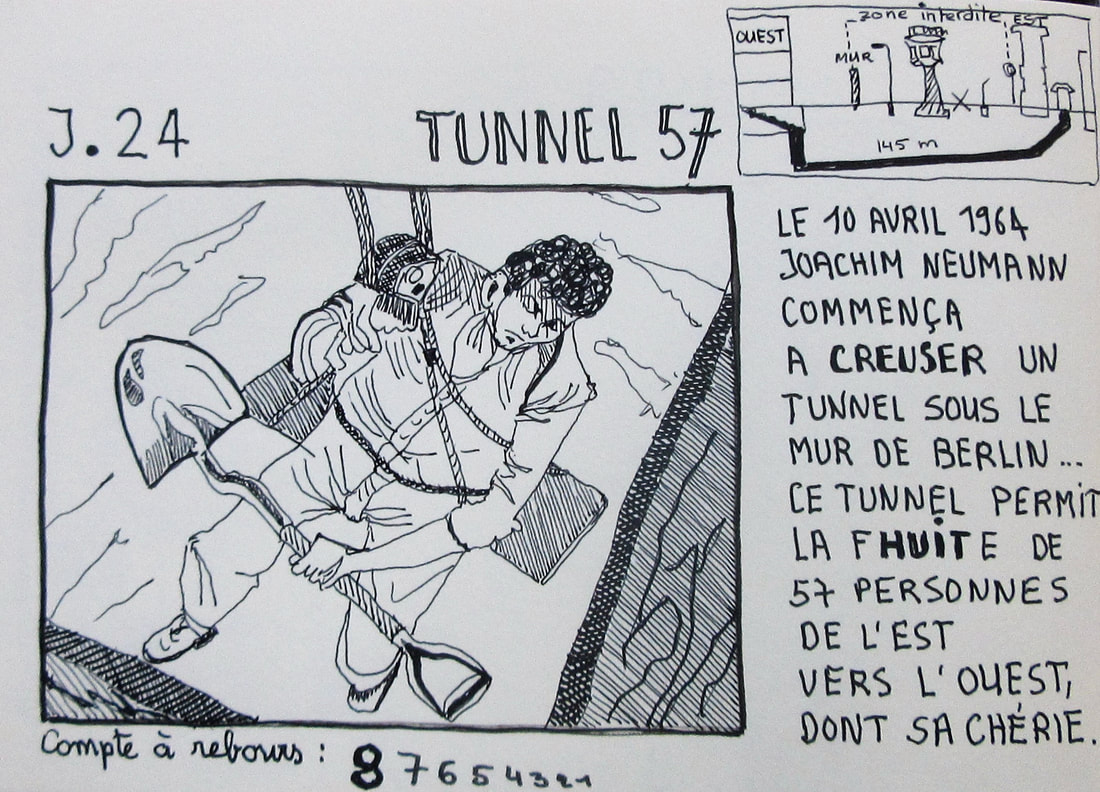 J.24
TUNNEL 57
zone interdite
OUEST
EST
MUR
145 m
LE 10 AVRIL 1964
JOACHIM NEUMANN
COMMENÇA
A CREUSER UN
TUNNEL SOUS LE
MUR DE BERLIN...
CE TUNNEL PERMIT
LA FHUITE DE
57 PERSONNES
DE L'EST
VERS L'OUEST,
DONT SA CHÉRIE.
Compte à rebours : 8 7 6 5 4 3 2 1